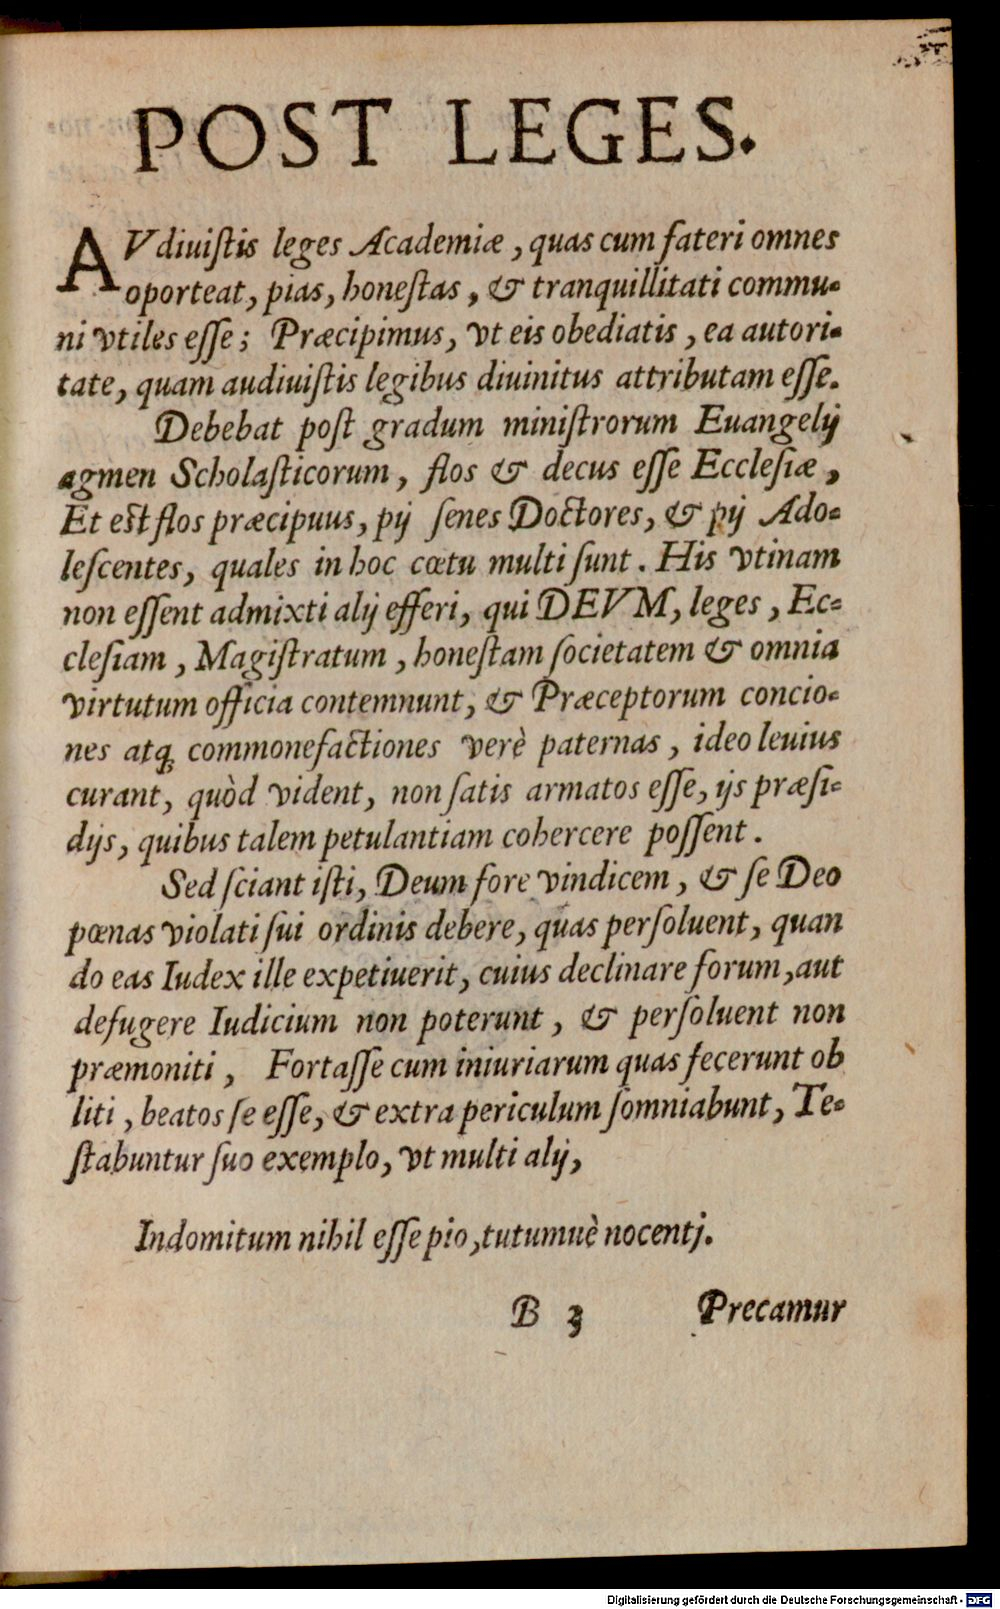 POST LEGES.
AVdiuiſtis leges Academiæ, quas cum fateri omnes
oporteat, pias, honeſtas, & tranquillitati commu-
ni vtiles eſſe; Præcipimus, vt eis obediatis, ea autori-
tate, quam audiuiſtis legibus diuinitus attributam eſſe.
Debebat poſt gradum miniſtrorum Euangelij
agmen Scholaſticorum, flos & decus eſſe Eccleſiæ,
Et eſt flos præcipuus, pij ſenes Doctores, & pij Ado-
leſcentes, quales in hoc cœtu multi ſunt. His vtinam
non eſſent admixti alij efferi, qui DEVM, leges, Ec-
cleſiam, Magiſtratum, honeſtam ſocietatem & omnia
virtutum officia contemnunt, & Præceptorum concio-
nes atq; commonefactiones verè paternas, ideo leuius
curant, quòd vident, non ſatis armatos eſſe, ijs præſi-
dijs, quibus talem petulantiam cohercere poſſent.
Sed ſciant iſti, Deum fore vindicem, & ſe Deo
pœnas violati ſui ordinis debere, quas perſoluent, quan
do eas Iudex ille expetiuerit, cuius declinare forum, aut
defugere Iudicium non poterunt, & perſoluent non
præmoniti, Fortaſſe cum iniuriarum quas fecerunt ob
liti, beatos ſe eſſe, & extra periculum ſomniabunt, Te-
ſtabuntur ſuo exemplo, vt multi alij,
Indomitum nihil eſſe pio, tutumuè nocentj.
B 3 Precamur
Digitalisierung gefördert durch die Deutsche Forschungsgemeinschaft - DFG